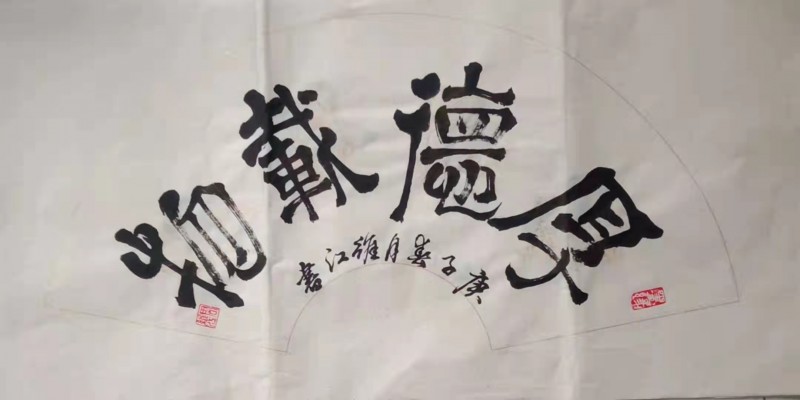 厚德載物
庚子春月维江書